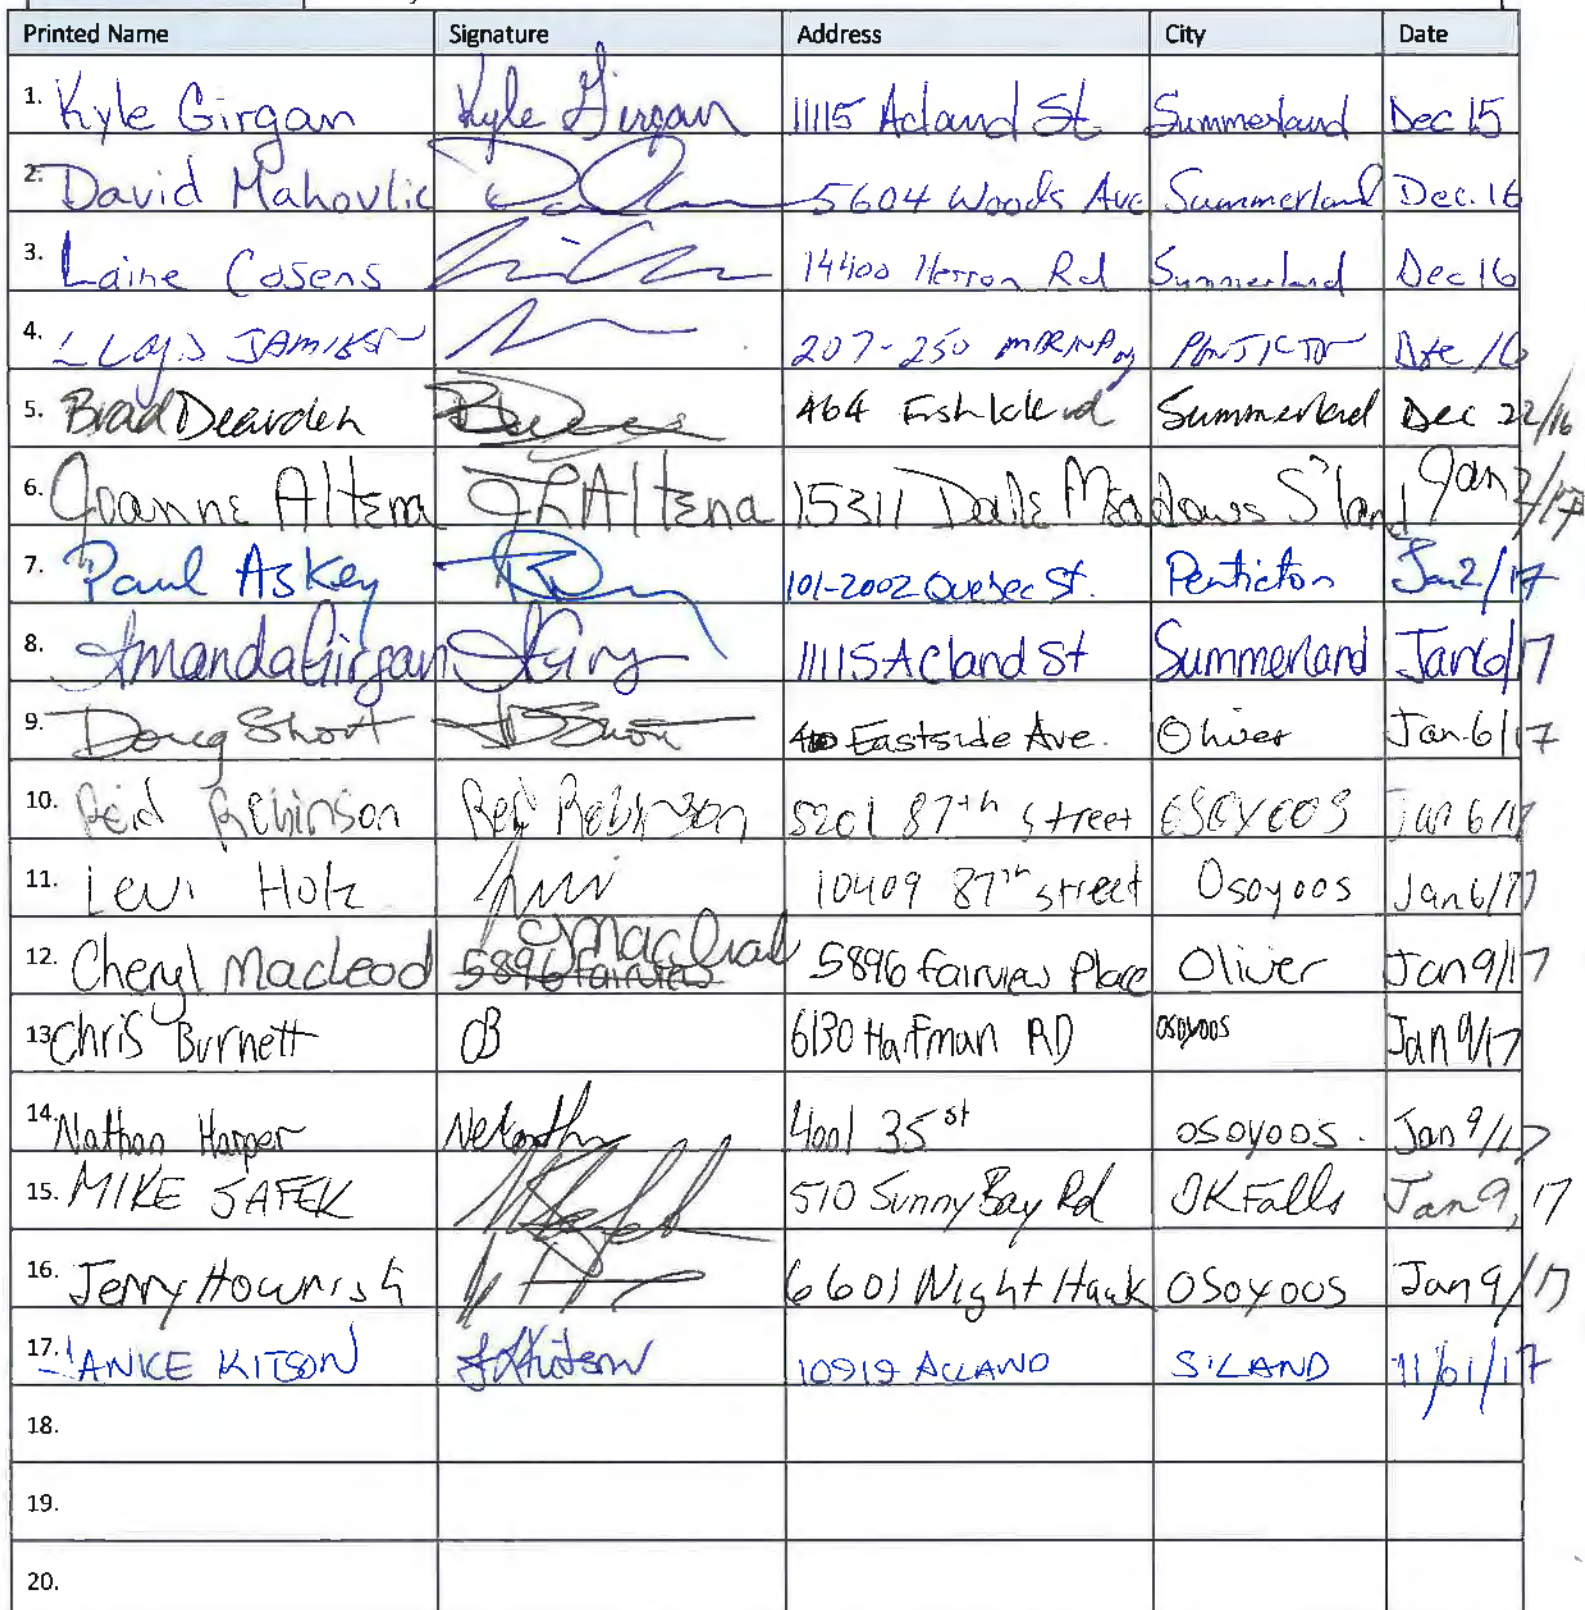 Printed Name Signature Address City Date
1. Kyle Girgan Kyle Girgan 11115 Acland St Summerland Dec 15
2. David Mahovlic 5604 Woods Ave Summerland Dec. 16
3. Laine Cosens 14400 Herron Rd Summerland Dec 16
4. 207-250
5. Brad Dearden 464 Summerland Dec 22/16
6. Joanne Altena JLAltena 15311 Dale Meadows S'land Jan 2/17
7. Paul Askey 101-2002 Quebec St. Penticton Jan 2/17
8. Amanda Girgan 11115 Acland St Summerland Jan 6/17
9. Doug Short DShort Eastside Ave. Oliver Jan 6/17
10. Reid Robinson Reid Robinson 5201 87th street OSOYOOS Jan 6/17
11. Levi Holz Levi 10409 87th street Osoyoos Jan 6/17
12. Cheryl MacLeod CMacLeod 5896 fairview 5896 fairview Place Oliver Jan 9/17
13. Chris Burnett CB 6130 Hartman RD osoyoos Jan 9/17
14. Nathan Harper 4001 35st osoyoos. Jan 9/17
15. MIKE SAFEK 510 Sunny Bay Rd OK Falls Jan 9, 17
16. Jerry 6601 Night Hawk OSoyoos Jan 9/17
17. JANICE KITSON JKitson 10919 ACLAND S'LAND 11/01/17
18.
19.
20.